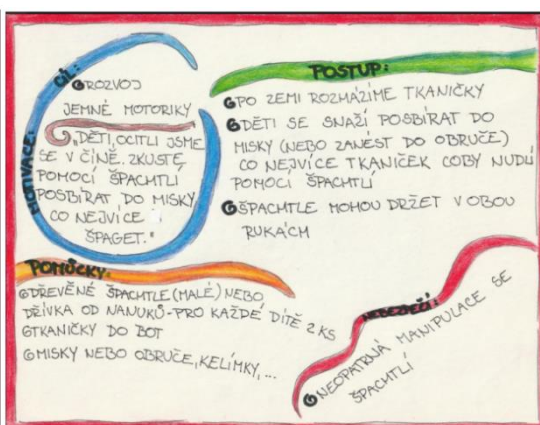 CÍL:
ROZVOJ
JEMNÉ MOTORIKY
MOTIVACE:
„DĚTI, OCITLI JSME
SE V ČÍNĚ. ZKUSTE
POMOCÍ ŠPACHTLÍ
POSBÍRAT DO MISKY
CO NEJVÍCE
ŠPAGET."
POSTUP:
PO ZEMI ROZHÁZÍME TKANIČKY
DĚTI SE SNAŽÍ POSBÍRAT DO
MISKY (NEBO ZANÉST DO OBRUČE)
CO NEJVÍCE TKANIČEK COBY NUDLÍ
POMOCÍ ŠPACHTLÍ
ŠPACHTLE MOHOU DRŽET V OBOU
RUKÁCH
POMŮCKY:
DŘEVĚNÉ ŠPACHTLE (MALÉ) NEBO
DŘÍVKA OD NANUKŮ-PRO KAŽDÉ DÍTĚ 2 KS
TKANIČKY DO BOT
MISKY NEBO OBRUČE, KELÍMKY,...
NEBEZPEČÍ:
NEOPATRNÁ MANIPULACE SE
ŠPACHTLÍ